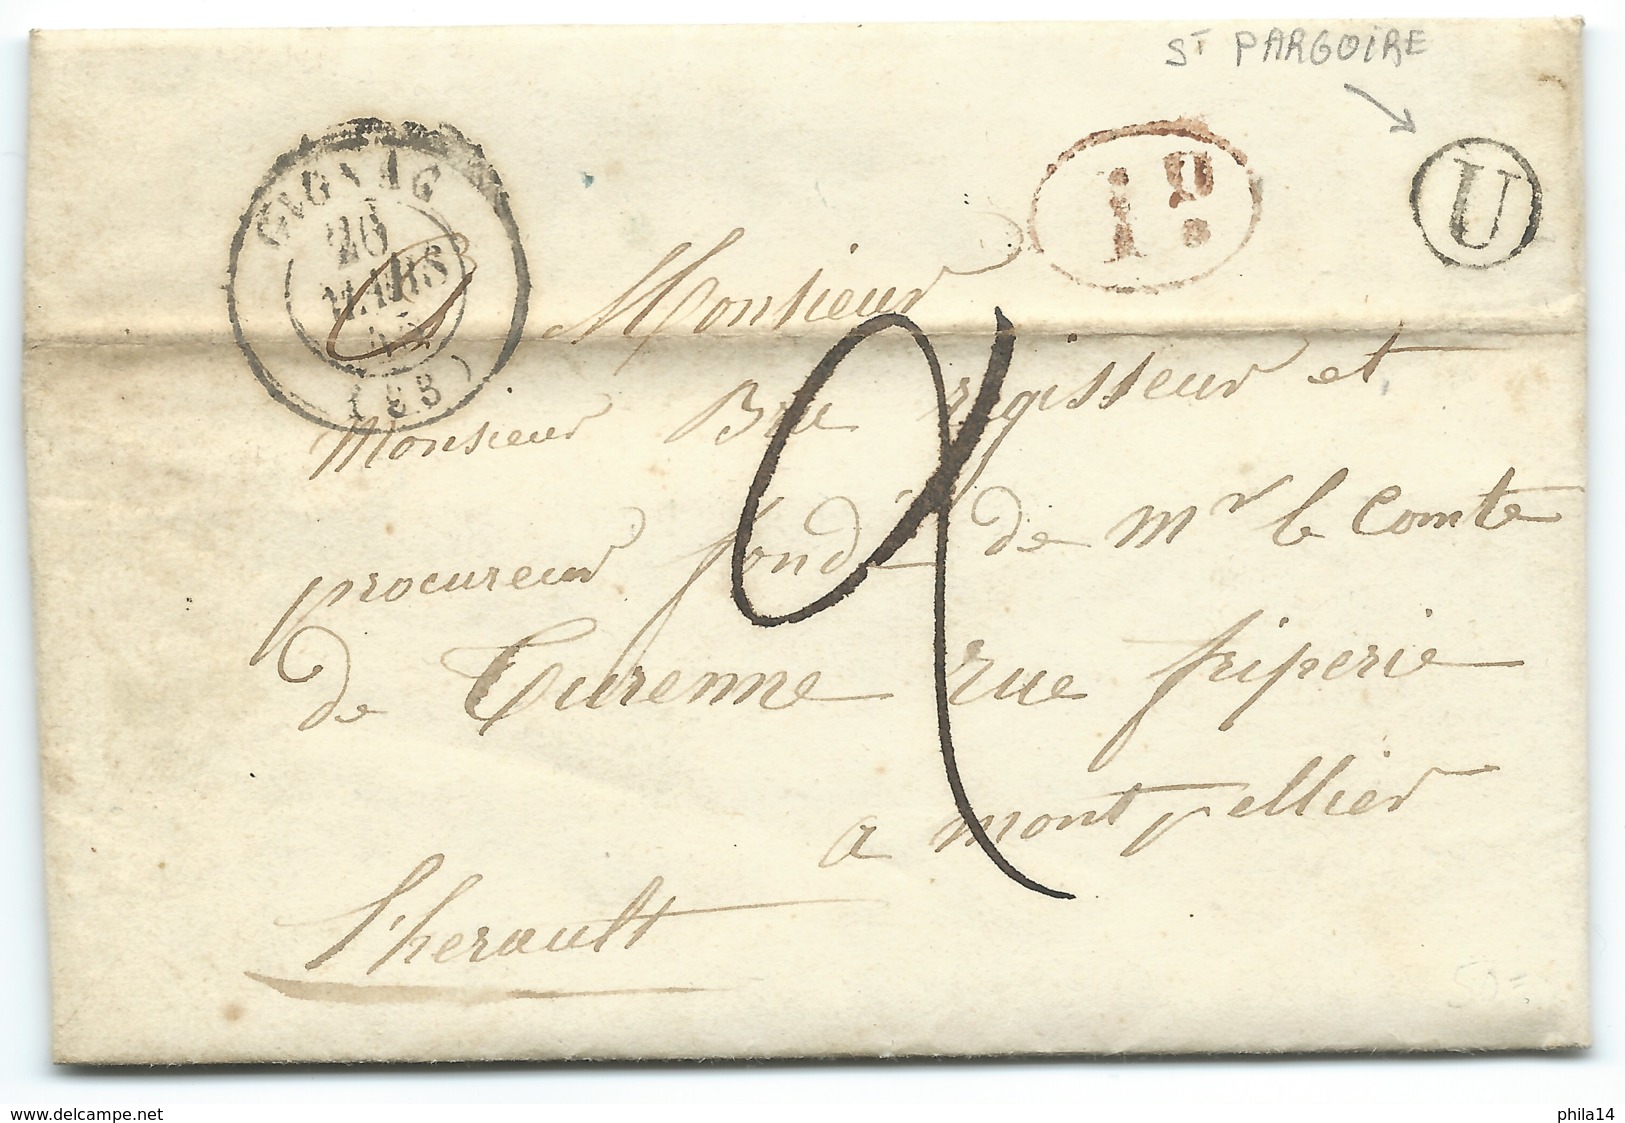 ST PARGOIRE
GIGNAC
26
MARS
45
(33)
1D.
U
Monsieur
Monsieur Bru régisseur et
procureur fondé de Mr le Comte
de Turenne rue friperie
a montpellier
l'herault
2
50=
www.delcampe.net
phila14